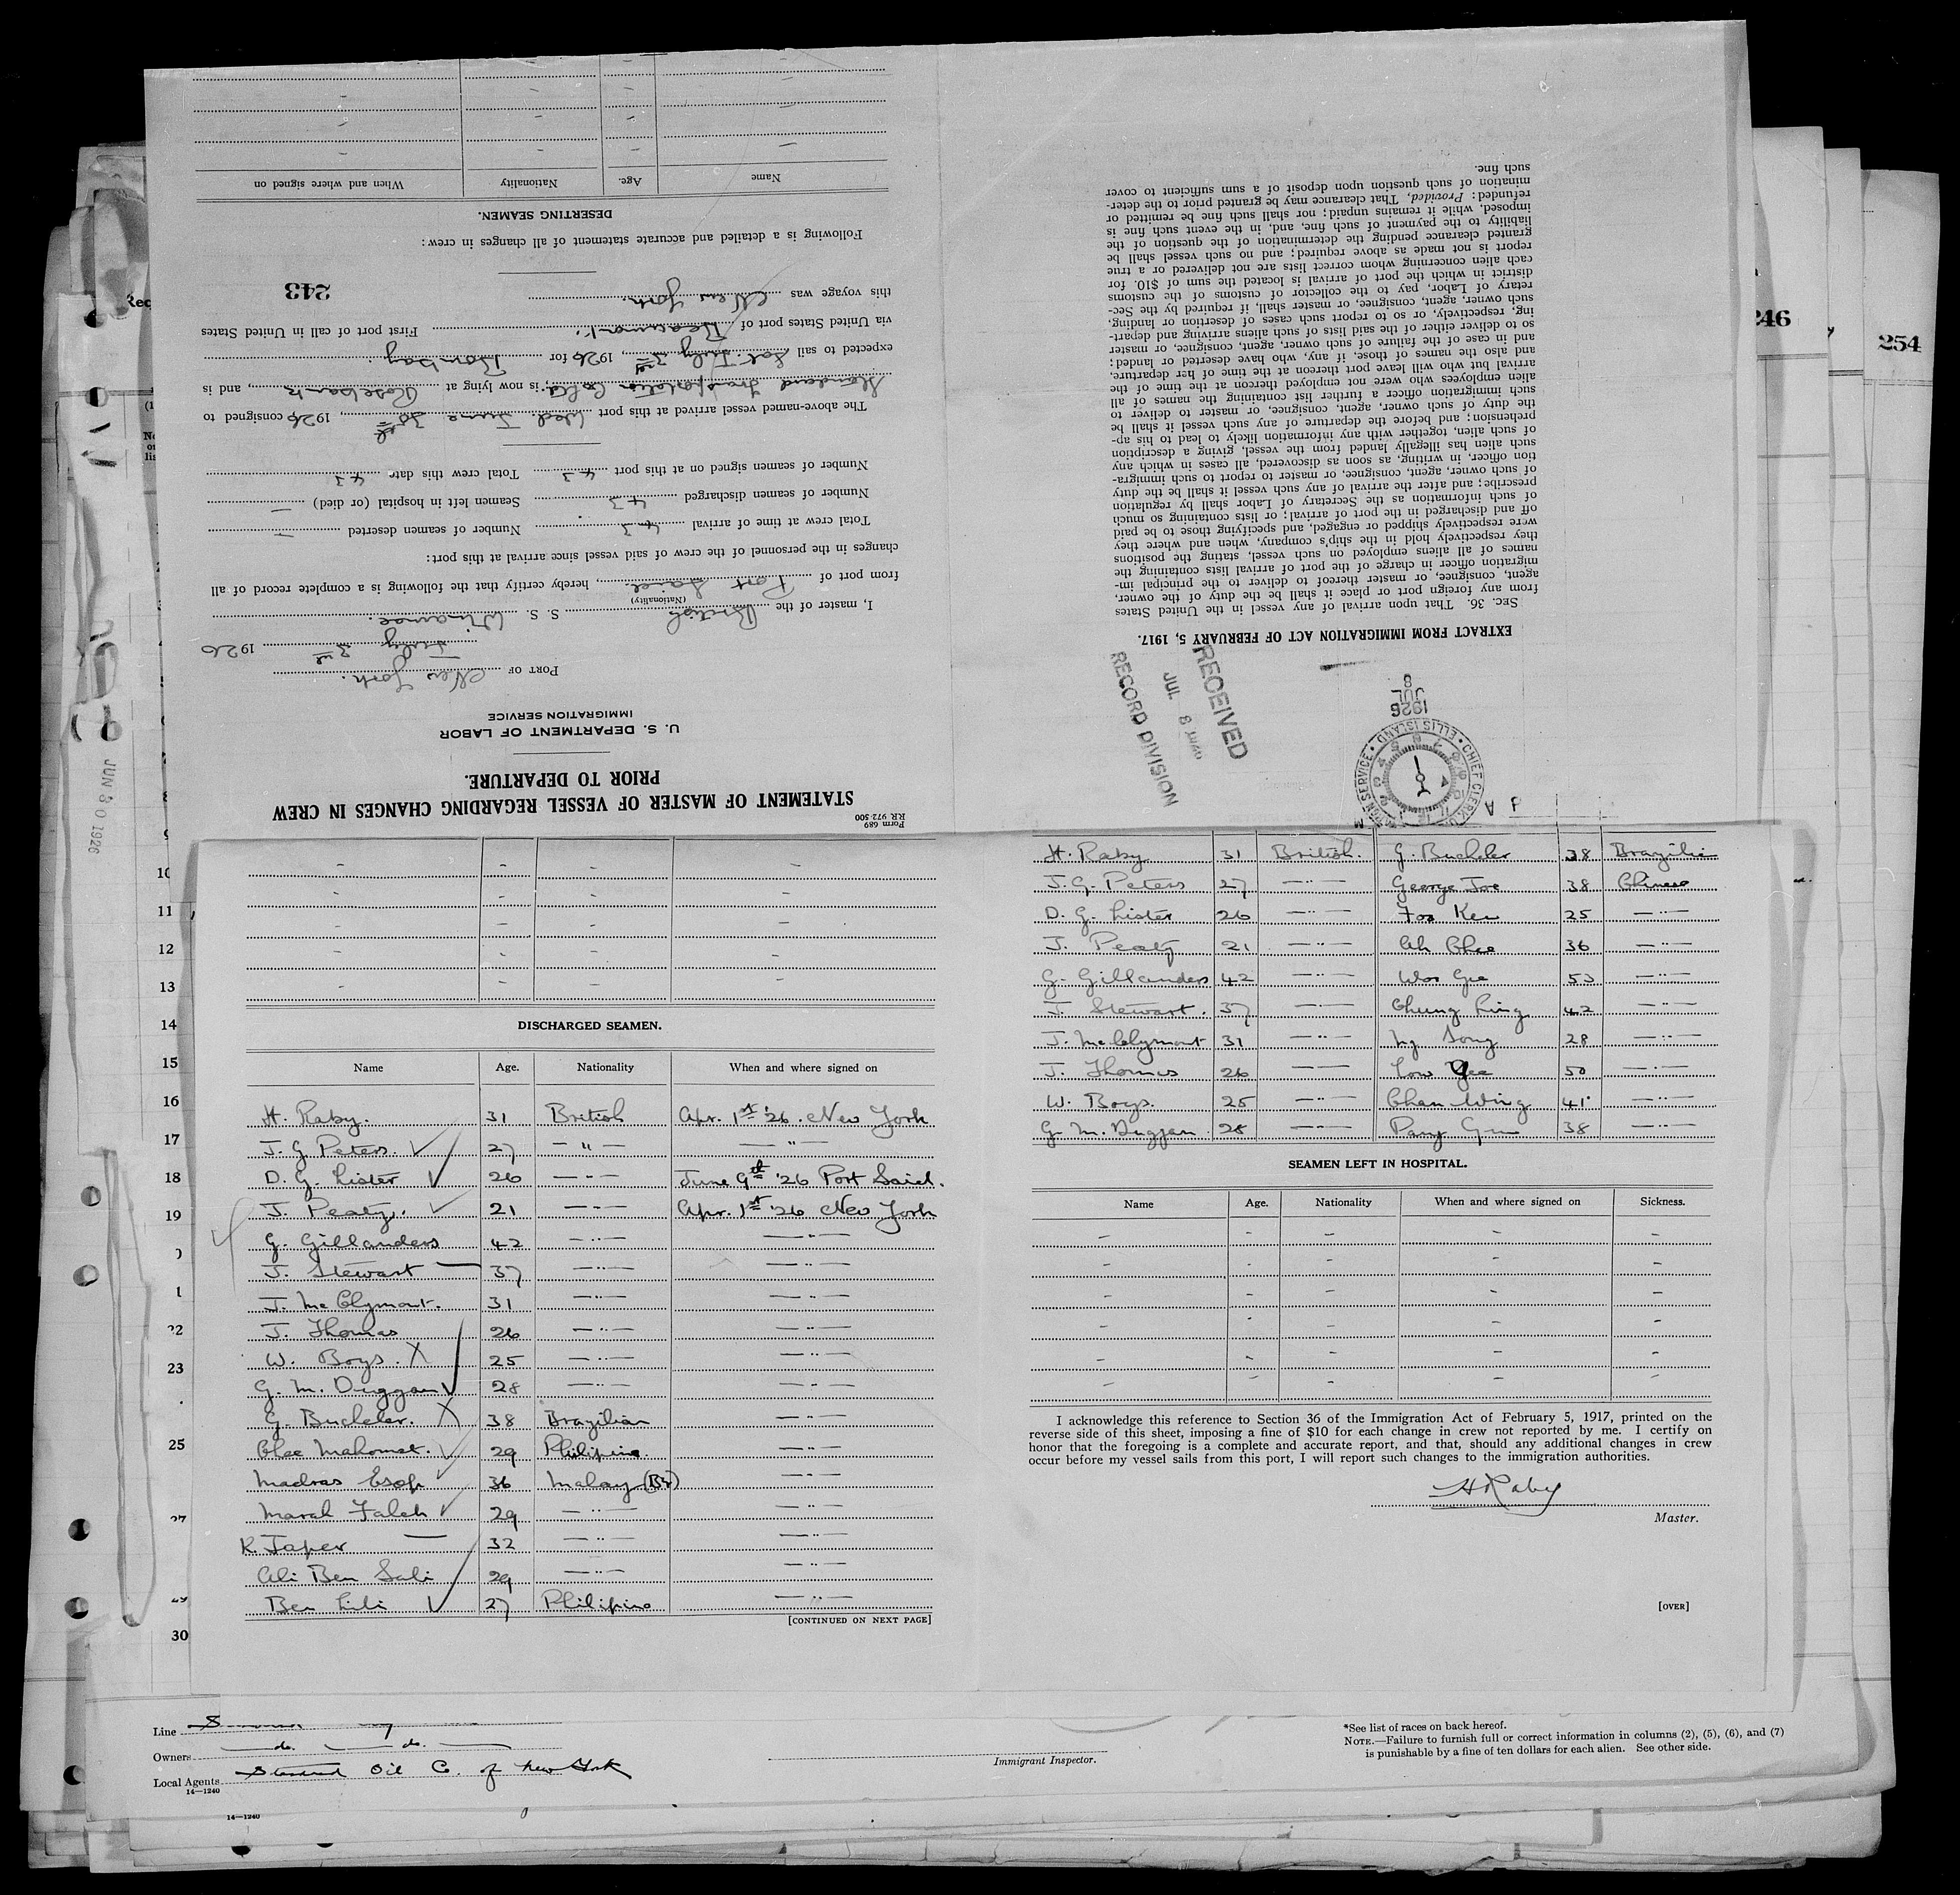 Form 689
RR 972-500
STATEMENT OF MASTER OF VESSEL REGARDING CHANGES IN CREW
PRIOR TO DEPARTURE.
U. S. DEPARTMENT OF LABOR
IMMIGRATION SERVICE
PORT OF New York.
July 3rd 1926
I, master of the British S. S. Winamac.
(Nationality)
from port of Port Said, hereby certify that the following is a complete record of all
changes in the personnel of the crew of said vessel since arrival at this port:
Total crew at time of arrival 43 Number of seamen deserted —
Number of seamen discharged 43 Seamen left in hospital (or died) —
Number of seamen signed on at this port 43 Total crew this date 43
The above-named vessel arrived at this port Wed. June 30th, 1926 consigned to
Standard Transportation is now lying at Rosebank, and is
expected to sail Sat. July 3rd, 1926 for Bombay.
via United States port of First port of call in United States
this voyage was New York.
243
Following is a detailed and accurate statement of all changes in crew:
DESERTING SEAMEN.
Name Age. Nationality When and where signed on
EXTRACT FROM IMMIGRATION ACT OF FEBRUARY 5, 1917.
SEC. 36. That upon arrival of any vessel in the United States
from any foreign port or place it shall be the duty of the owner,
agent, consignee, or master thereof to deliver to the principal im-
migration officer in charge of the port of arrival lists containing the
names of all aliens employed on such vessel, stating the positions
they respectively hold in the ship's company, when and where they
were respectively shipped or engaged, and specifying those to be paid
off and discharged in the port of arrival; or lists containing so much
of such information as the Secretary of Labor shall by regulation
prescribe; and after the arrival of any such vessel it shall be the duty
of such owner, agent, consignee, or master to report to such immigra-
tion officer, in writing, as soon as discovered, all cases in which any
such alien has illegally landed from the vessel, giving a description
of such alien, together with any information likely to lead to his ap-
prehension; and before the departure of any such vessel it shall be
the duty of such owner, agent, consignee, or master to deliver to
such immigration officer a further list containing the names of all
alien employees who were not employed thereon at the time of the
arrival but who will leave port thereon at the time of her departure,
and also the names of those, if any, who have deserted or landed;
and in case of the failure of such owner, agent, consignee, or master
so to deliver either of the said lists of such aliens arriving and depart-
ing, respectively, or so to report such cases of desertion or landing,
such owner, agent, consignee, or master shall, if required by the Sec-
retary of Labor, pay to the collector of customs of the customs
district in which the port of arrival is located the sum of $10. for
each alien concerning whom correct lists are not delivered or a true
report is not made as above required; and no such vessel shall be
granted clearance pending the determination of the question of the
liability to the payment of such fine, and, in the event such fine is
imposed, while it remains unpaid; nor shall such fine be remitted or
refunded: Provided, That clearance may be granted prior to the deter-
mination of such question upon deposit of a sum sufficient to cover
such fine.
RECEIVED
JUL 8
RECORD DIVISION
1926
JUL
8
CHIEF CLERK
ELLIS ISLAND
246
254
JUN 30 1926
10
11
12
13
14
15
16
17
18
19
22
23
25
30
DISCHARGED SEAMEN.
Name Age. Nationality When and where signed on
H. Raby. 31 British Apr. 1st '26. New York
J. G. Peters. 27 — " — — " —
D. G. Lister 26 — " — June 9th '26 Port Said.
J. Peaty. 21 — " — Apr. 1st '26 New York
G. Gillanders 42 — " — — " —
J. Stewart 37 — " — — " —
J. McClymont. 31 — " — — " —
J. Thomas 26 — " — — " —
W. Boys. X 25 — " — — " —
G. M. Duggan 28 — " — — " —
G. Bucheler. X 38 Brazilian — " —
Chee Mahomet. 29 Philipine. — " —
Madras Esop 36 Malay (Br) — " —
Marah Faleh 29 — " — — " —
K. Japer 32 — " — — " —
Ali Ben Sali 29 — " — — " —
Ben Lili 27 Philipine — " —
[CONTINUED ON NEXT PAGE]
H. Raby 31 British. G. Bucheler 38 Brazilian
J. G. Peters 27 — " — George Joe 38 Chinese
D. G. Lister 26 — " — Foo Kew 25 — " —
J. Peaty 21 — " — Ah Chee 36 — " —
G. Gillanders 42 — " — Woo Gee 53 — " —
J. Stewart. 37 — " — Chung Ling 42 — " —
J. McClymont 31 — " — Ng Song 28 — " —
J. Thomas 26 — " — Low Gee 50 — " —
W. Boys. 25 — " — Chan Wing 41 — " —
G. M. Duggan 28 — " — Pang Gun 38 — " —
SEAMEN LEFT IN HOSPITAL.
Name Age. Nationality When and where signed on Sickness.
I acknowledge this reference to Section 36 of the Immigration Act of February 5, 1917, printed on the
reverse side of this sheet, imposing a fine of $10 for each change in crew not reported by me. I certify on
honor that the foregoing is a complete and accurate report, and that, should any additional changes in crew
occur before my vessel sails from this port, I will report such changes to the immigration authorities.
H Raby
Master.
[OVER]
Line
Owners do. do.
Local Agents Standard Oil Co. of New York
14—1240
14—1240
Immigrant Inspector.
*See list of races on back hereof.
NOTE.—Failure to furnish full or correct information in columns (2), (5), (6), and (7)
is punishable by a fine of ten dollars for each alien. See other side.